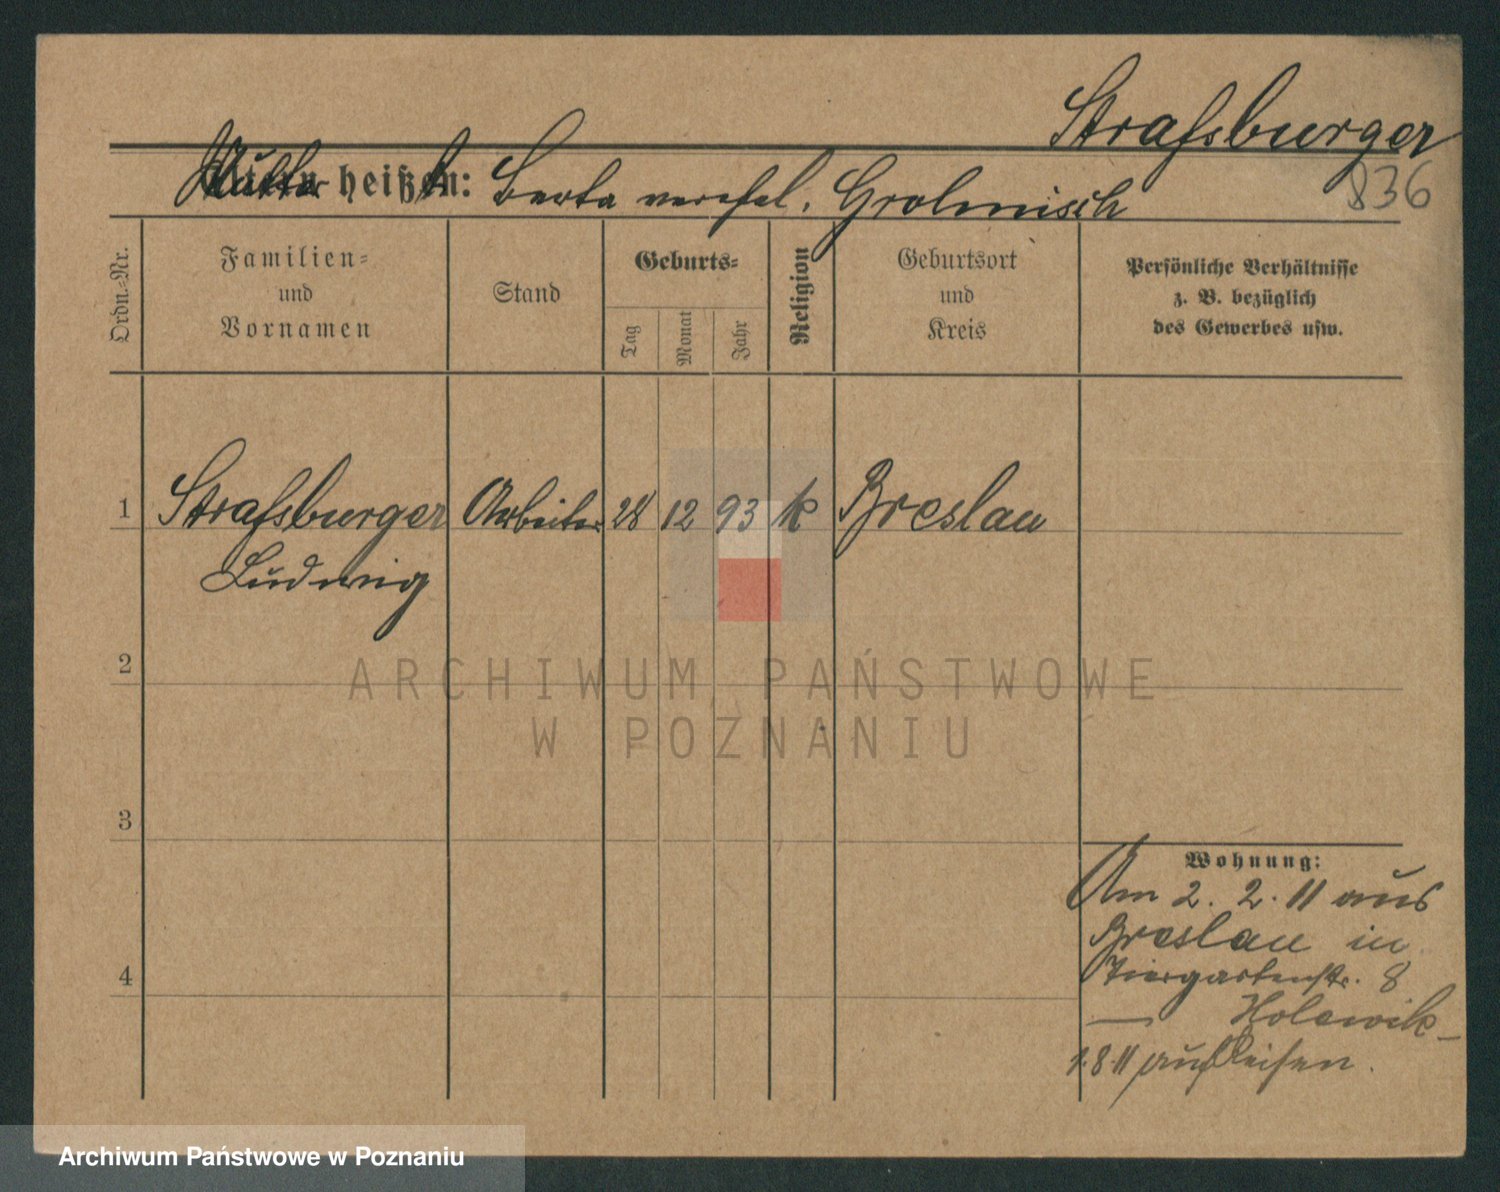 Straßburger
836
Mutter heißt: Berta verehel. Grolmisch
Ordn.=Nr.
Familien=
und
Vornamen
Stand
Geburts=
Tag
Monat
Jahr
Religion
Geburtsort
und
Kreis
Persönliche Verhältnisse
z. B. bezüglich
des Gewerbes usw.
1 Straßburger Arbeiter 28 12 93 k Breslau
Ludwig
2
ARCHIWUM PAŃSTWOWE
W POZNANIU
3
4
Wohnung:
Am 2. 2. 11 aus
Breslau in
Tiergartenstr. 8
— 
1.8.11 auf Reisen.
Archiwum Państwowe w Poznaniu